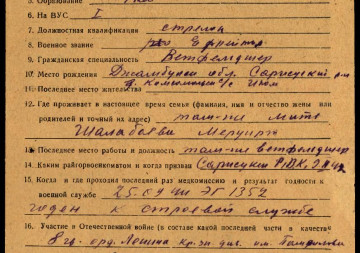 5. Образование
6. На ВУС I
7. Должностная квалификация стрелок
8. Военное звание Ефрейтор
9. Гражданская специальность Ветфельдшер
10. Место рождения Джамбулск обл. Сарысуйский р-н
11. Последнее место жительства
12. Где проживает в настоящее время семья (фамилия, имя и отчество жены или
родителей и точный их адрес) там-же мать
Шалабаева
13. Последнее место работы и должность там-же ветфельдшер
14. Каким райгорвоенкоматом и когда призван Сарысуйск РВК,
15. Когда и где проходил последний раз медкомиссию и результат годности к
военной службе 25.09 ЭГ 1352
годен к строевой службе
16. Участие в Отечественной войне (в составе какой последней части в качестве
8 гв. орд. Ленина кр. зн. див. им. Панфилова